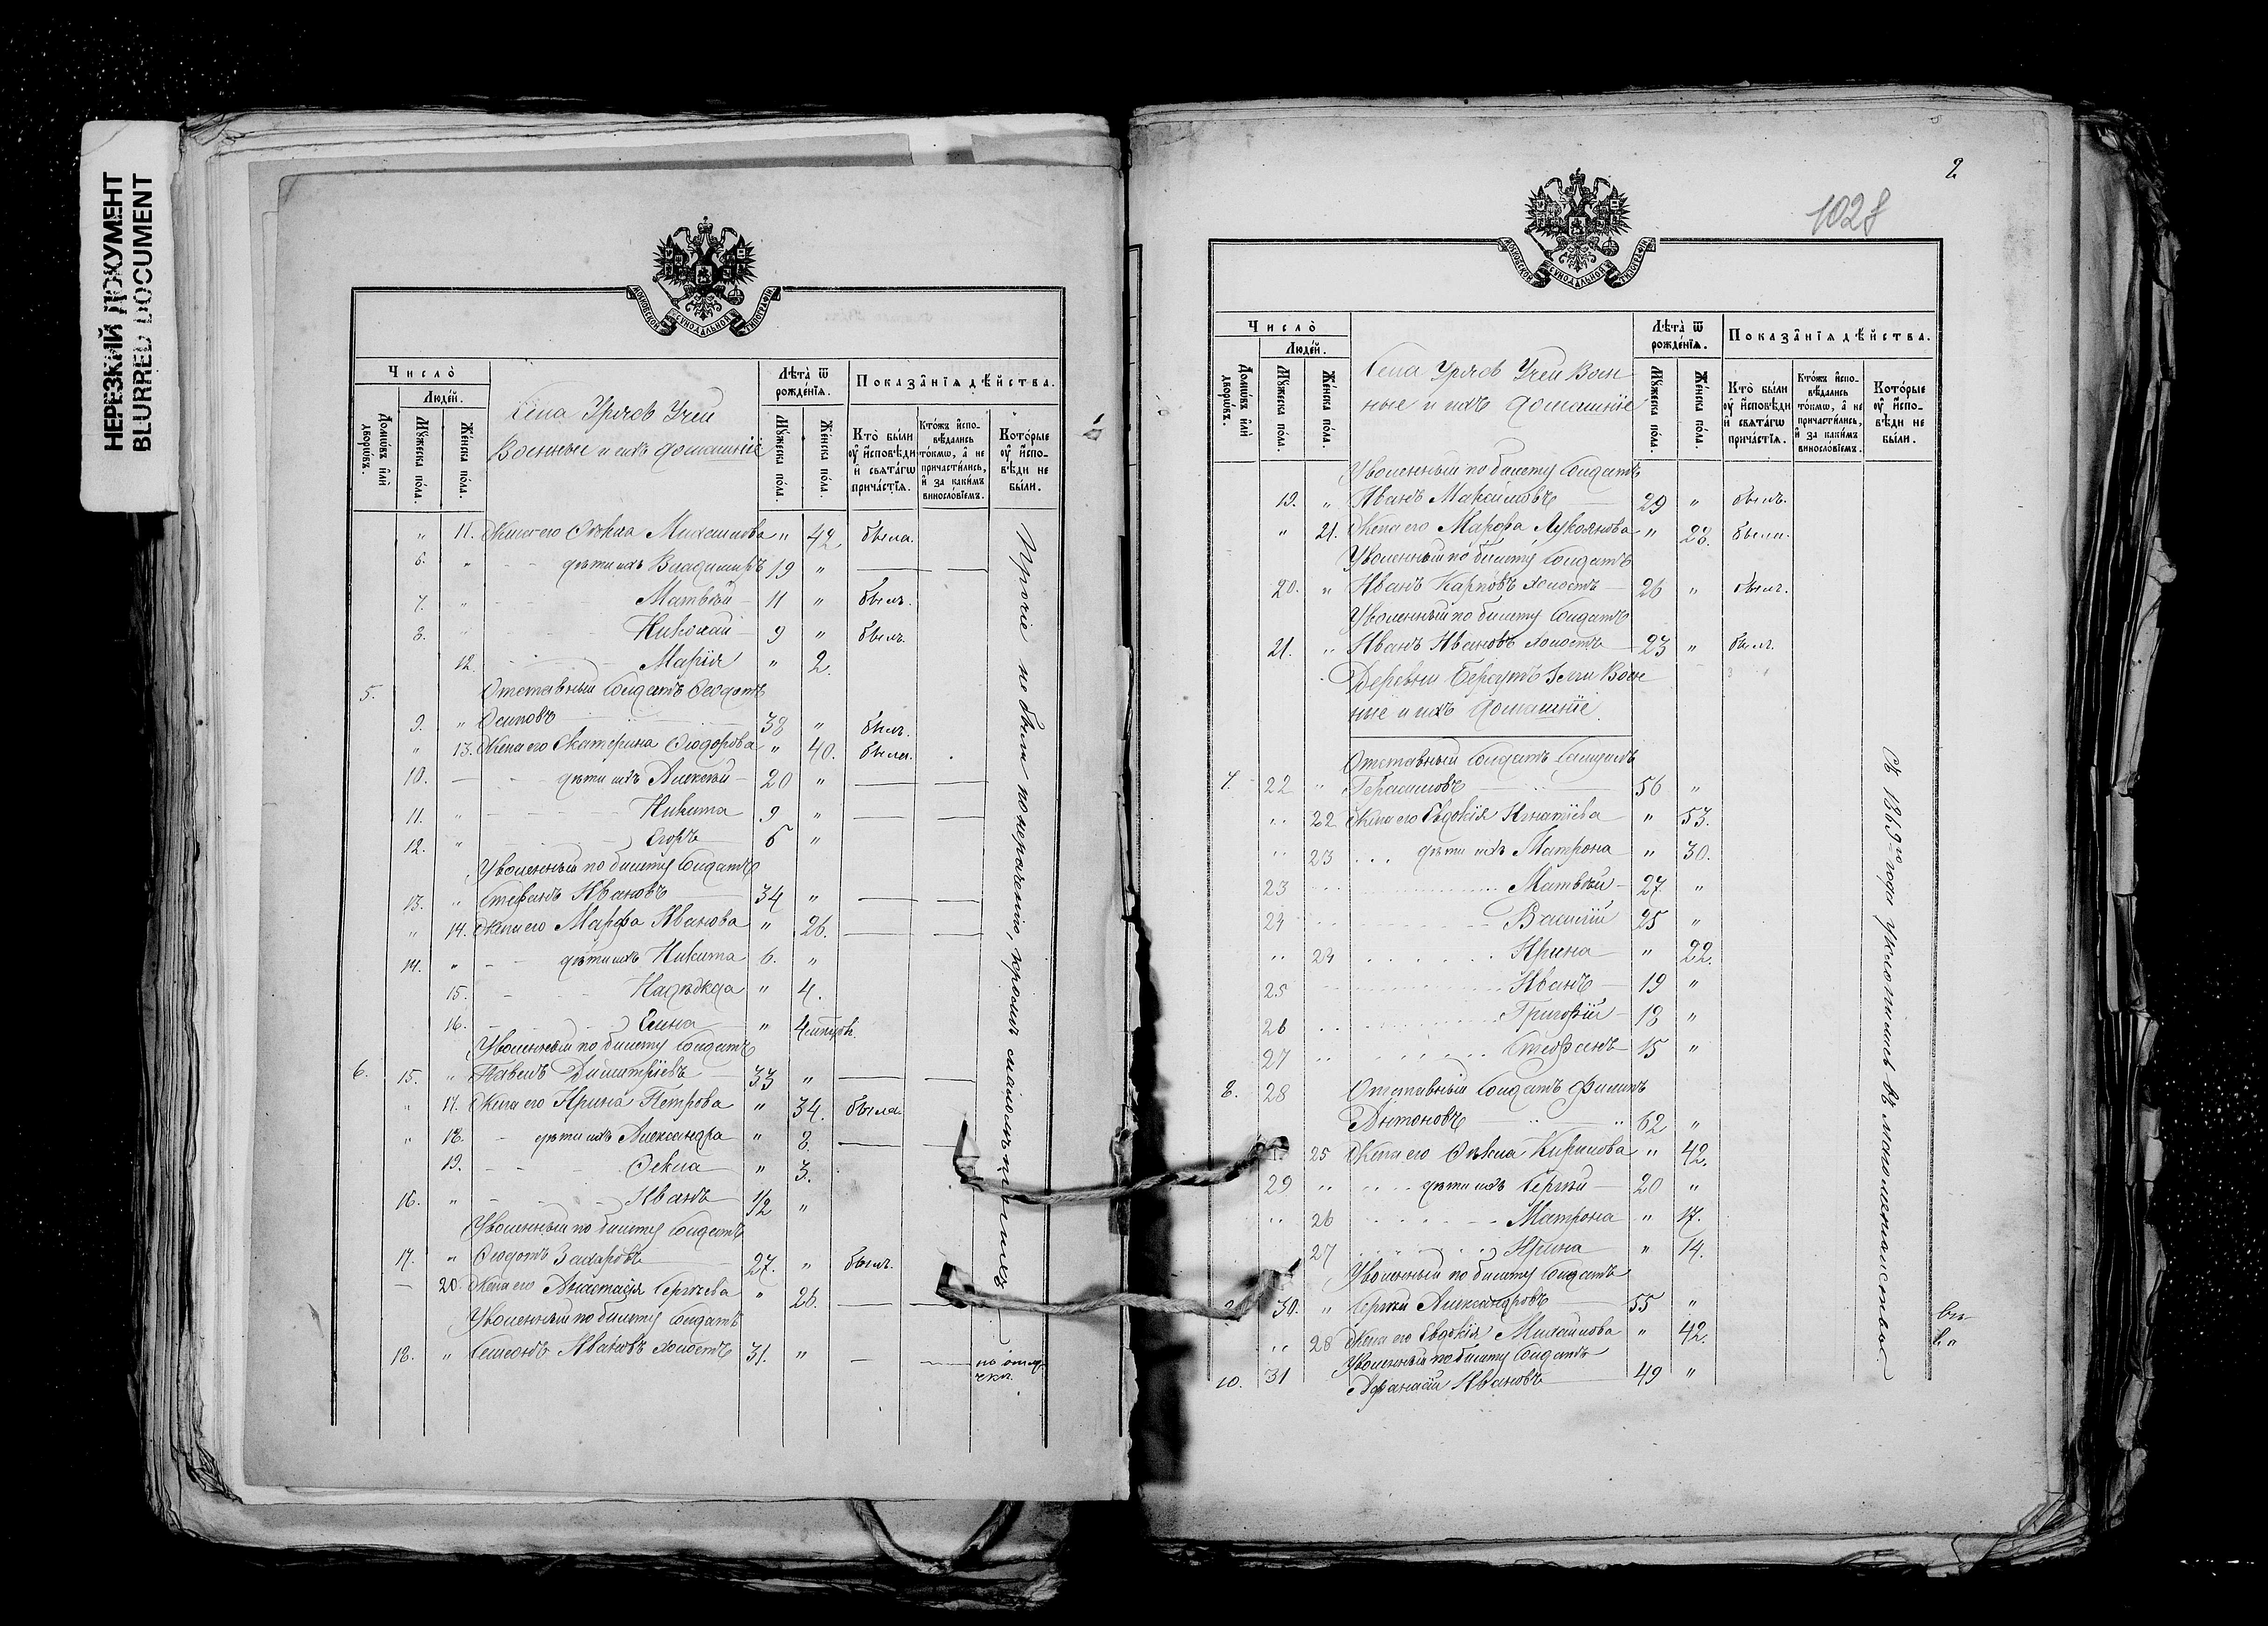 НЕРЕЗКИЙ ДОКУМЕНТ
BLURRED DOCUMENT
МОСКОВСКОЙ СѴНОДАЛЬНОЙ ТИПОГРАФІИ
Число̀
Люде́й.
Домѡ́въ и҆лѝ дворѡ́въ.
Мꙋ́жеска по́ла.
Же́нска по́ла.
Села Урясъ Учей
Военные и ихъ домашніе
Лѣта̀ ѿ рожде́нїѧ.
Мꙋ́жеска по́ла.
Же́нска по́ла.
Показа̂нїѧ дѣ́йства.
Кто̀ бы́ли ᲂу҆ и҆сповѣ́ди и҆ свѧта́гѡ причáстїѧ.
Кто́жъ и҆спо-вѣ́дались то́кмѡ, а҆ не причасти́лись, и҆ за каки́мъ винослóвїемъ.
Кото́рые ᲂу҆ и҆спо-вѣ́ди не бы́ли.
" 11. Жена его Ѳекла Михаилова " 42. была.
6. " дѣти ихъ Владимиръ 19 "
7. " Матвѣй 11 " былъ.
8. " Николай 9 " былъ.
12. Марія " 2.
5. Отставный солдатъ Ѳеодотъ
9. " Осиповъ 38 " былъ.
" 13. Жена его Екатерина Ѳеодорова " 40. была.
10. дѣти ихъ Алексѣй 20 "
11. " Никита 9 "
12. " Егоръ 6 "
Уволенный по билету солдатъ
13. " Стефанъ Ивановъ 34 "
" 14. Жена его Марфа Иванова " 26.
14. " дѣти ихъ Никита 6. "
15. Надежда " 4.
16. Елена " 4 мѣсяцовъ.
Уволенный по билету солдатъ
6. 15. " Павелъ Димитріевъ 33 "
" 17. Жена его Ирина Петрова " 34. была.
" 18. дѣти ихъ Александра " 8.
19. Ѳекла " 3.
16. " Иванъ 1/2 "
Уволенный по билету солдатъ
17. " Ѳеодотъ Захаровъ 27. " былъ.
20. Жена его Анастасія Сергѣева " 26.
Уволенный по билету солдатъ
18. " Семенъ Ивановъ холостъ 31. " по отлучкѣ.
Прочіе не были по нераченію, кромѣ малолѣтныхъ
2
1028
МОСКОВСКОЙ СѴНОДАЛЬНОЙ ТИПОГРАФІИ
Число̀
Люде́й.
Домѡ́въ и҆лѝ дворѡ́въ.
Мꙋ́жеска по́ла.
Же́нска по́ла.
Села Урясъ Учей Воен
ные и ихъ домашніе
Лѣта̀ ѿ рожде́нїѧ.
Мꙋ́жеска по́ла.
Же́нска по́ла.
Показа̂нїѧ дѣ́йства.
Кто̀ бы́ли ᲂу҆ и҆сповѣ́ди и҆ свѧта́гѡ причáстїѧ.
Кто́жъ и҆спо-вѣ́дались то́кмѡ, а҆ не причасти́лись, и҆ за каки́мъ винослóвїемъ.
Кото́рые ᲂу҆ и҆спо-вѣ́ди не бы́ли.
Уволенный по билету солдатъ
19. " Иванъ Максимовъ 29 " былъ.
" 21. Жена его Марфа Лукоянова " 28. была.
Уволенный по билету солдатъ
20. " Иванъ Карповъ холостъ 26 " былъ.
Уволенный по билету солдатъ
21. " Иванъ Ивановъ холостъ 23 " былъ.
Деревни Берсутъ Воен
ные и ихъ домашніе.
Отставный солдатъ
7. 22 " Герасимовъ 56 "
" 22 Жена его Евдокія Игнатіева " 53.
" 23 дѣти ихъ Матрона " 30.
23 Матвѣй 27 "
24 Василій 25 "
" 24 Ирина " 22.
25 Иванъ 19 "
26 Григорій 18 "
27 Стефанъ 15 "
8. 28 Отставный солдатъ Филипъ
Антоновъ 62 "
25 Жена его Ѳекла Кирилова " 42.
29 " дѣти ихъ Сергѣй 20 "
" 26 Матрона " 17.
27 Ирина " 14.
Уволенный по билету солдатъ
30. " Сергѣй Александровъ 55 "
" 28 Жена его Евдокія Михаилова " 42.
Уволенный по билету солдатъ
10. 31 Афанасій Ивановъ 49 "
Съ 1869го года уклонились въ магометанство.